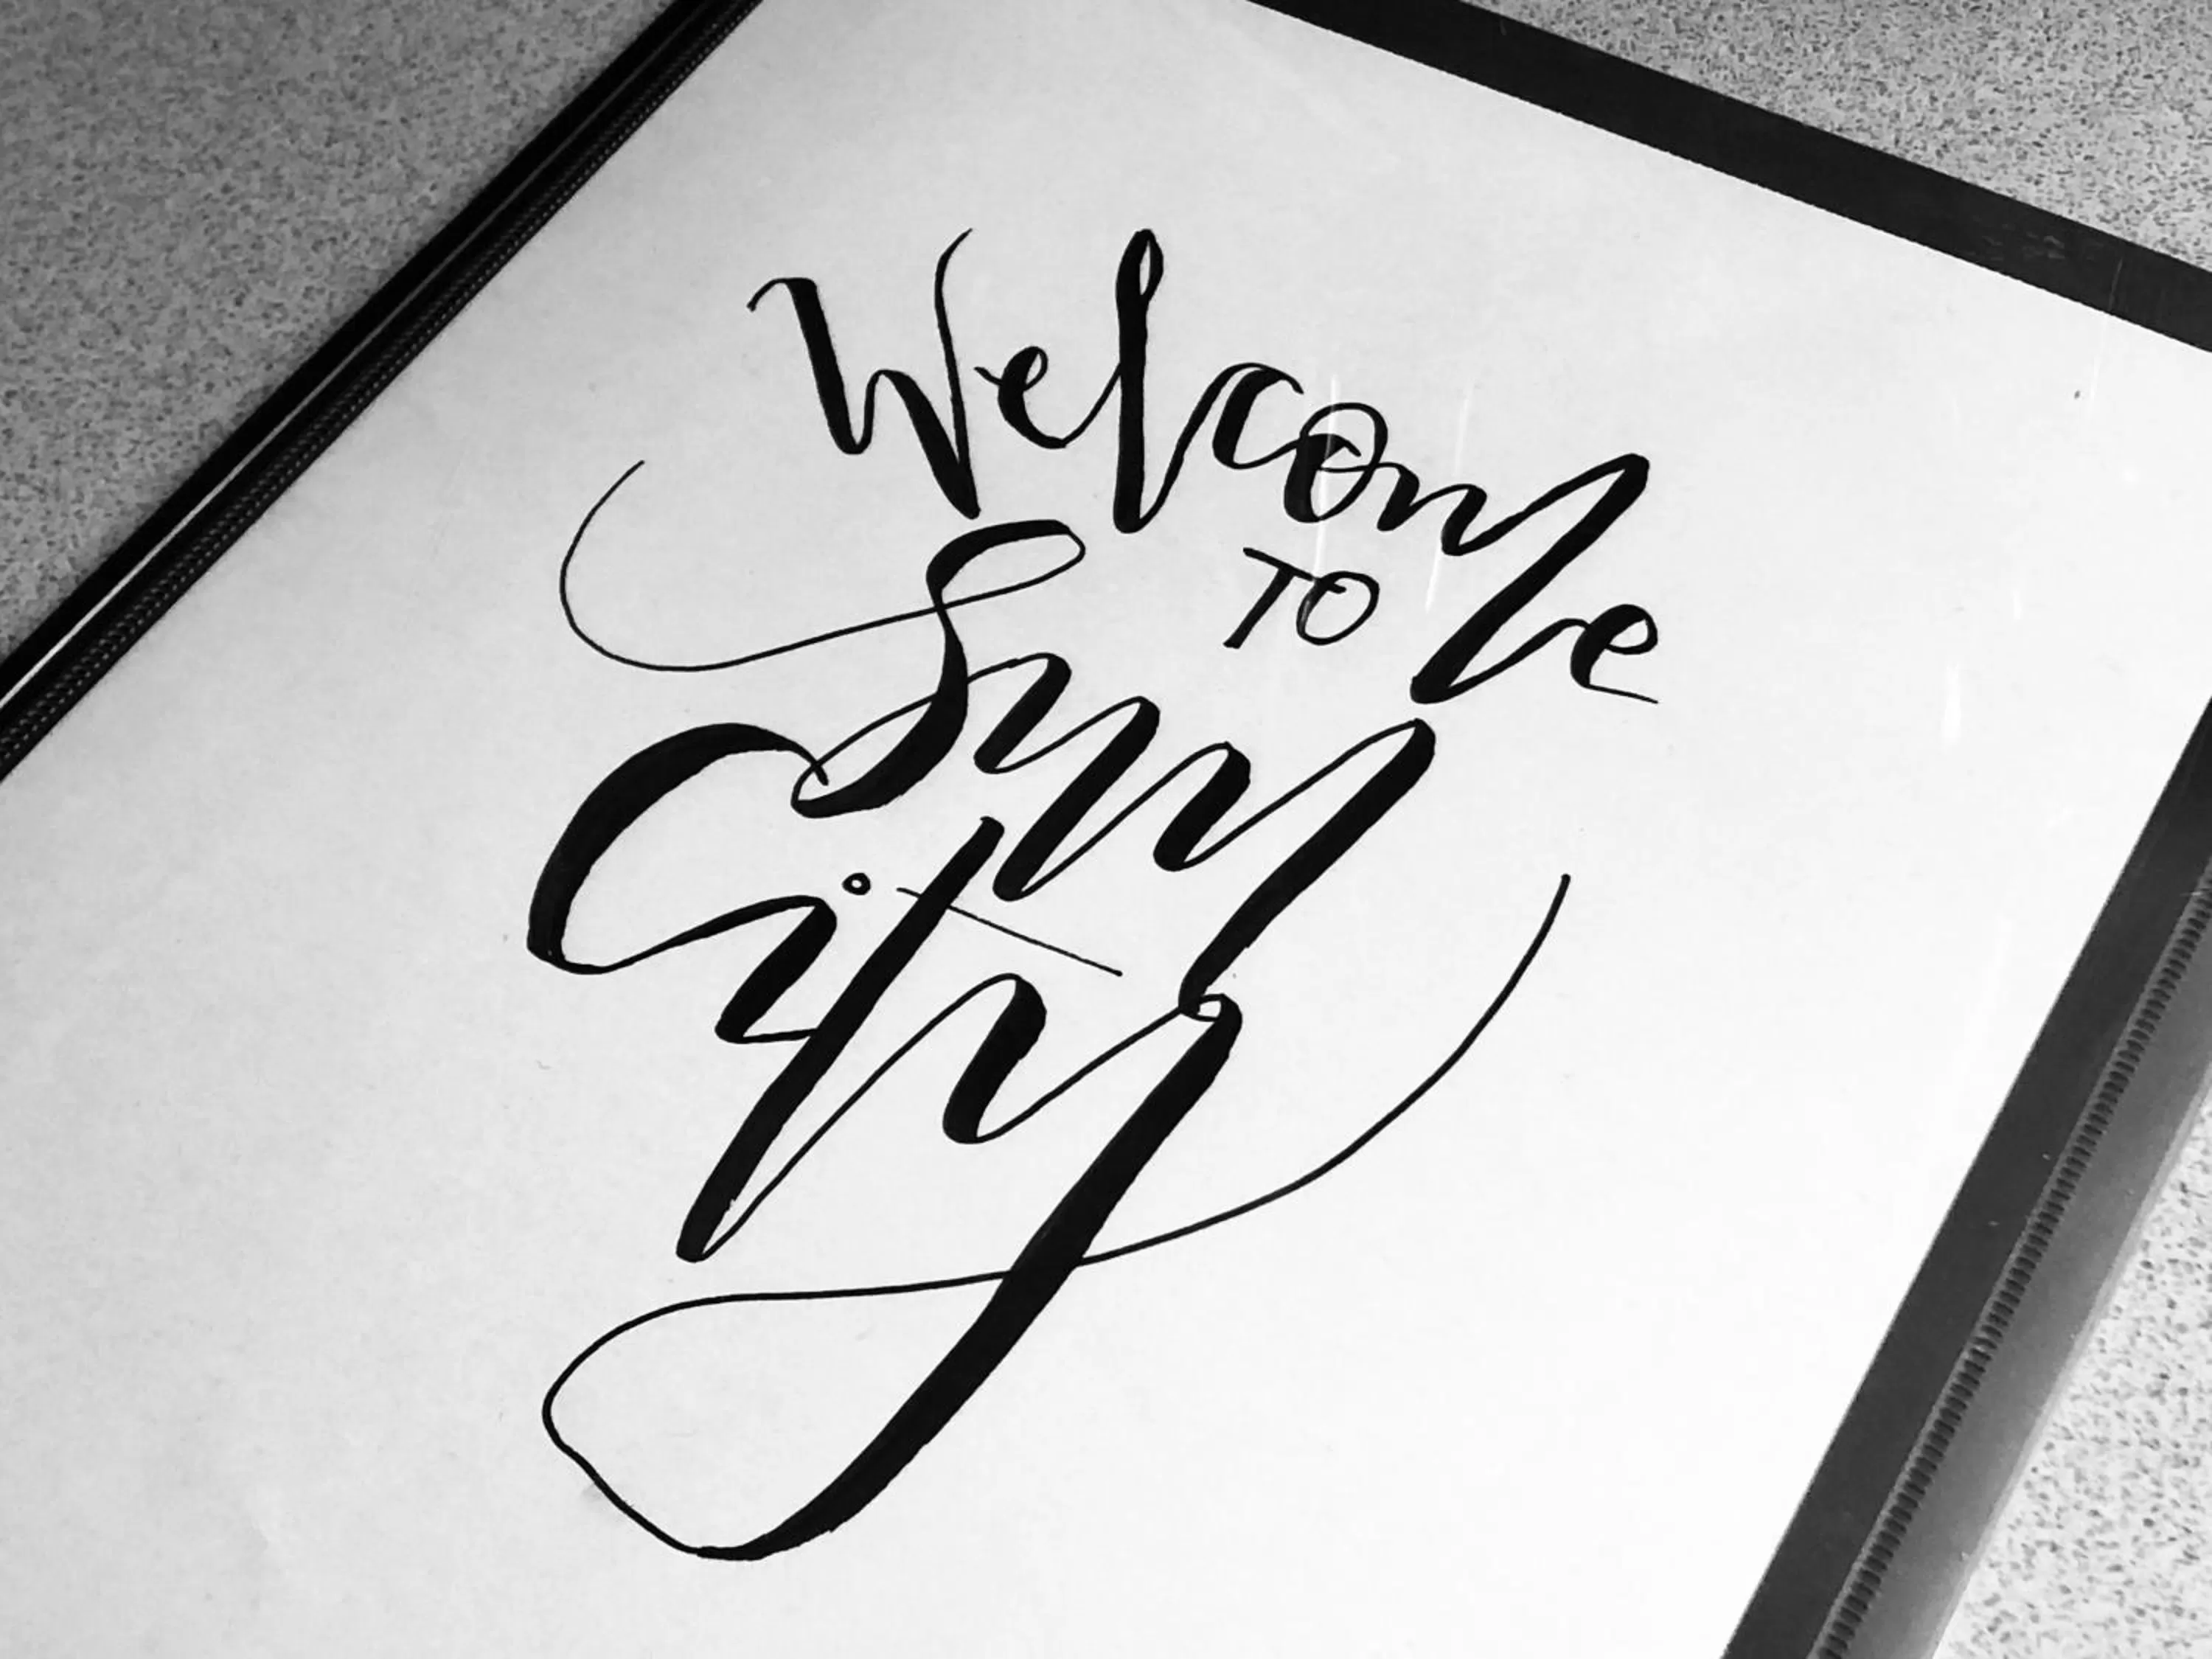 Welcome
TO
Sun
City